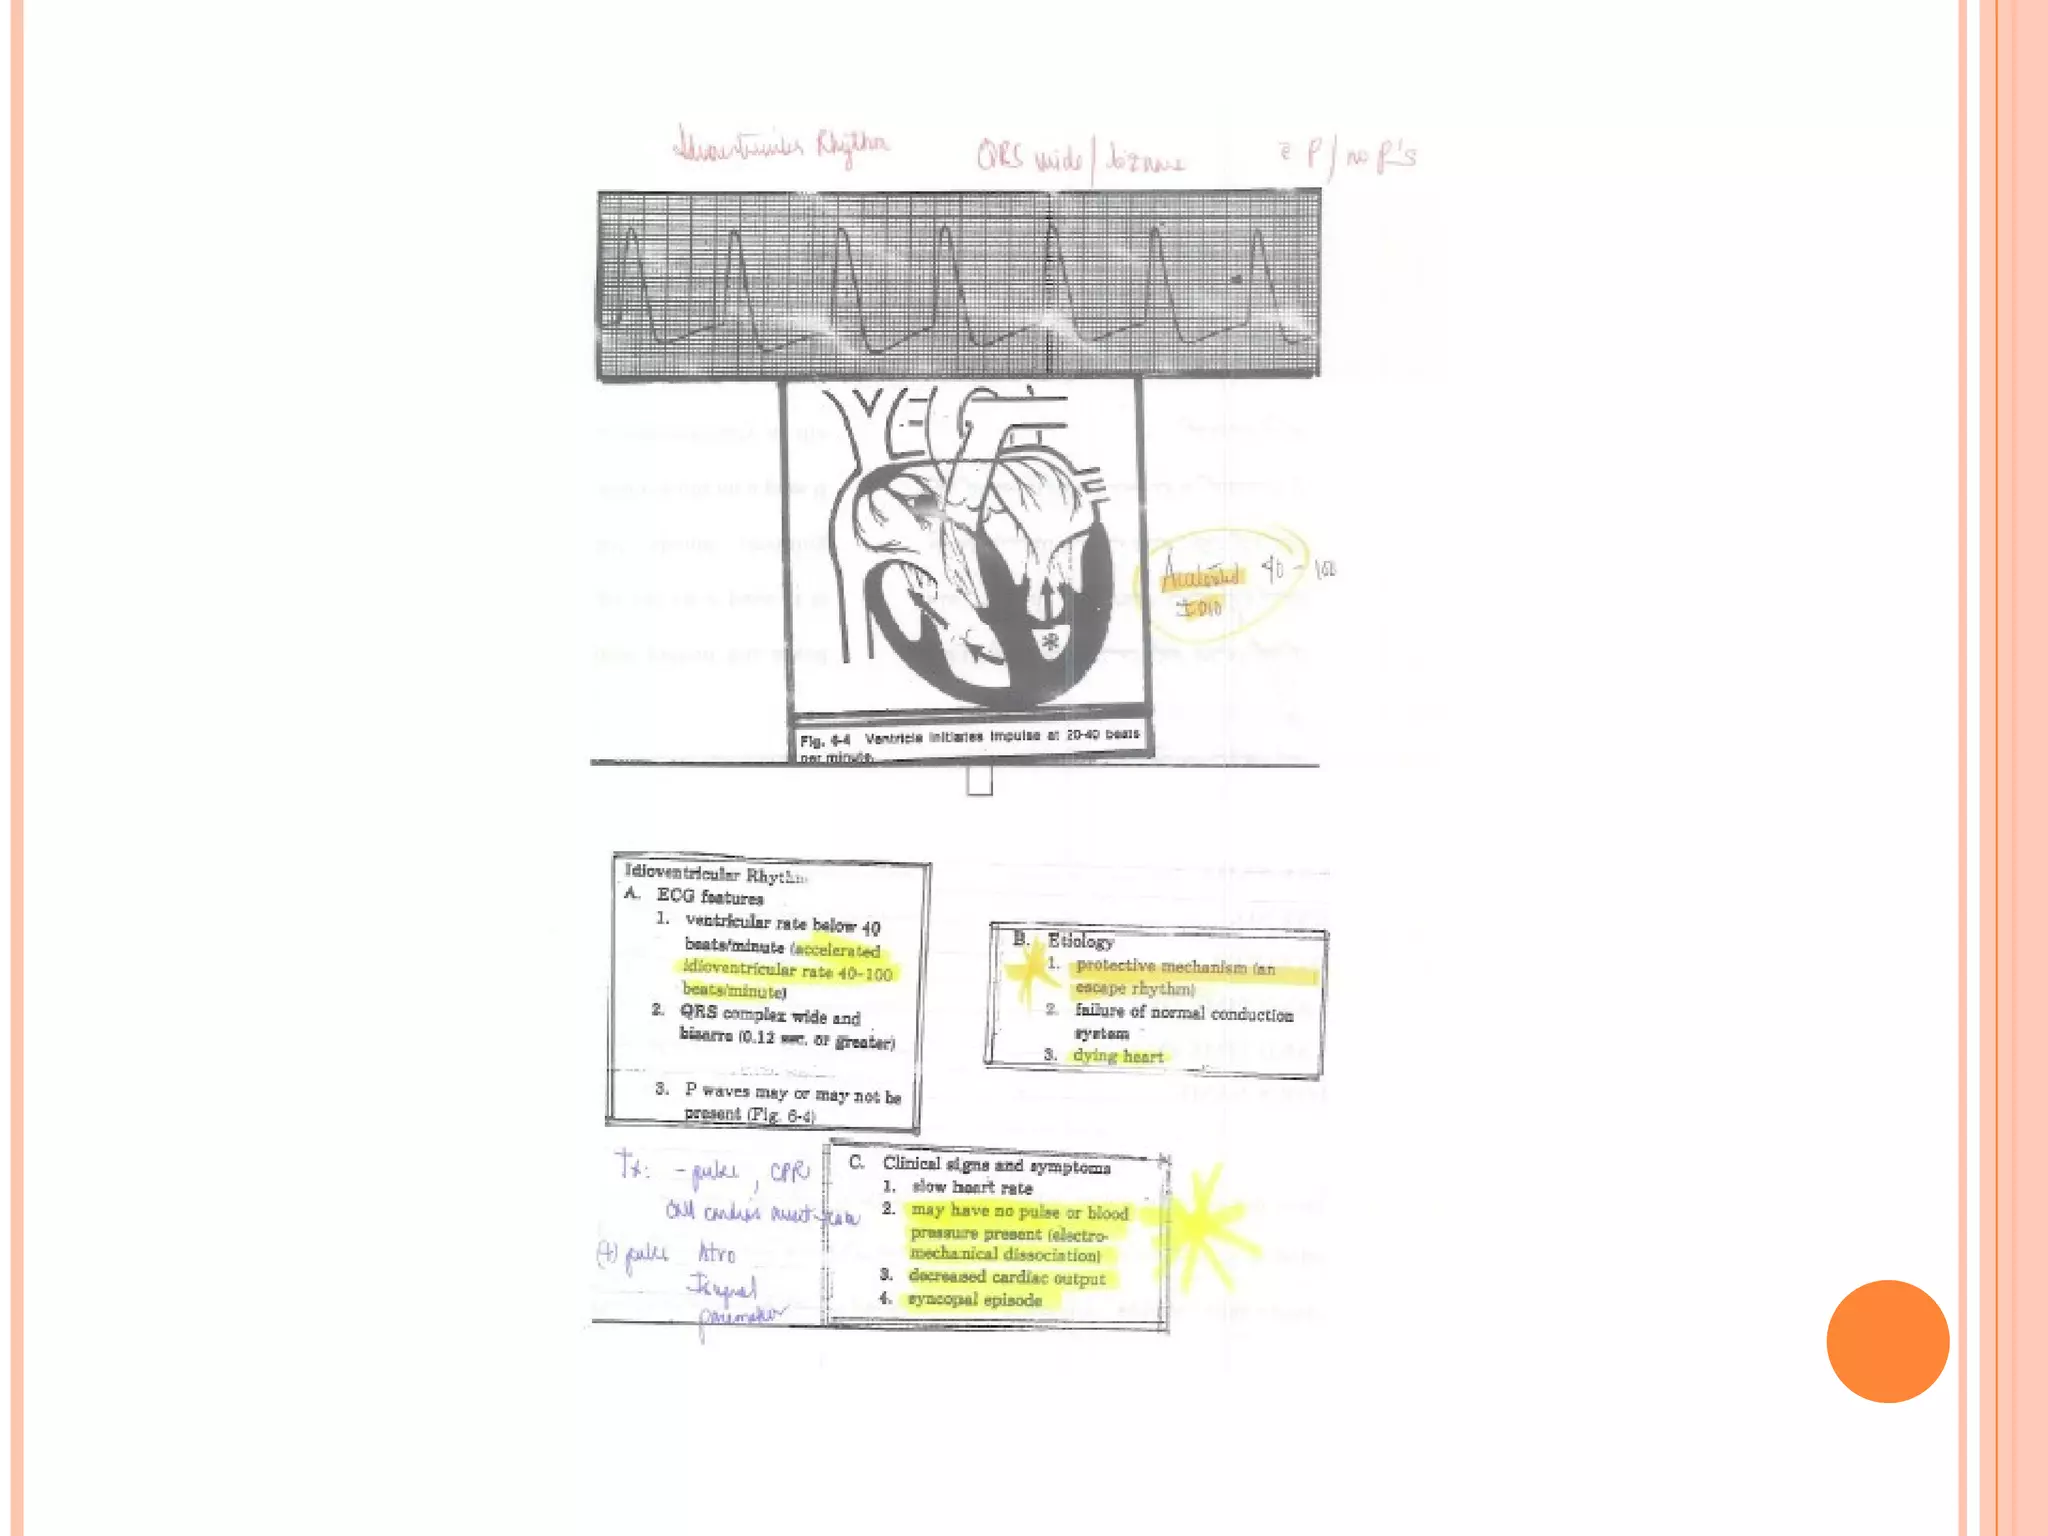 Idioventricular Rhythm QRS wide/bizarre c̄ P/no P's
Accelerated 40-100
IDIO
Fig. 6-4 Ventricle initiates impulse at 20-40 beats
per minute.
Idioventricular Rhythm
A. ECG features
1. ventricular rate below 40
beats/minute (accelerated
idioventricular rate 40-100
beats/minute)
2. QRS complex wide and
bizarre (0.12 sec. or greater)
3. P waves may or may not be
present (Fig. 6-4)
B. Etiology
1. protective mechanism (an
escape rhythm)
2. failure of normal conduction
system
3. dying heart
Tx: - pulse, CPR
(+) pulse Atro
Isuprel
pacemaker
C. Clinical signs and symptoms
1. slow heart rate
2. may have no pulse or blood
pressure present (electro-
mechanical dissociation)
3. decreased cardiac output
4. syncopal episode